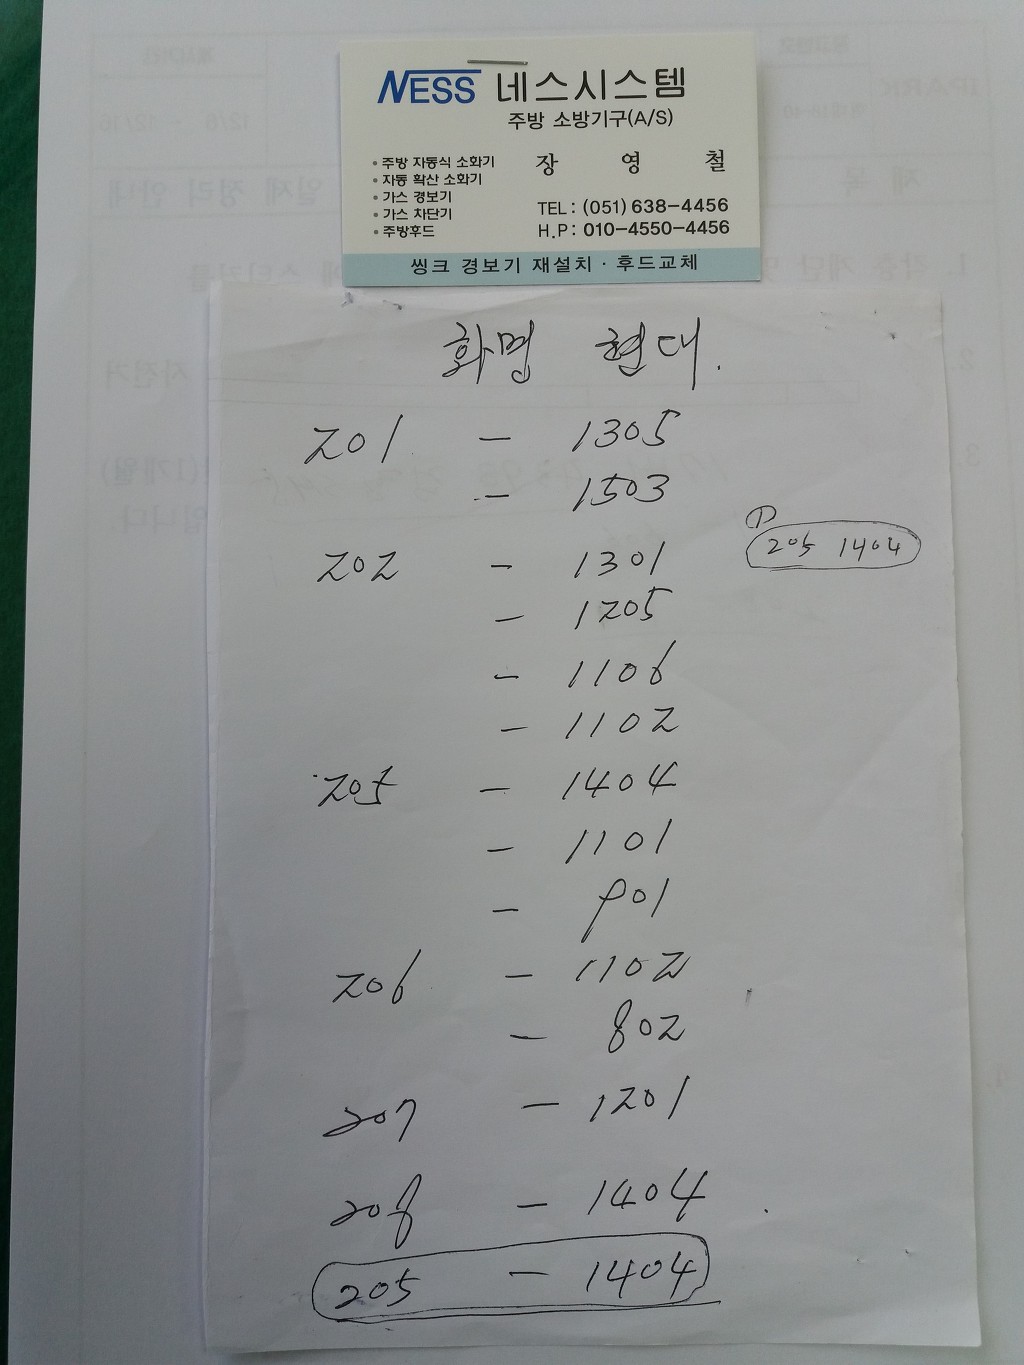 NESS 네스시스템
주방 소방기구(A/S)
• 주방 자동식 소화기
• 자동 확산 소화기
• 가스 경보기
• 가스 차단기
• 주방후드
장 영 철
TEL : (051) 638-4456
H.P : 010-4550-4456
씽크 경보기 재설치 · 후드교체
화명 현대.
201 - 1305
- 1503
205 1404
202 - 1301
- 1205
- 1106
- 1102
205 - 1404
- 1101
- 901
206 - 1102
- 802
207 - 1201
208 - 1404
205 - 1404